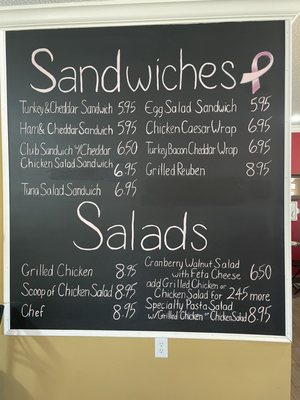 Sandwiches
Turkey & Cheddar Sandwich 5.95
Ham & Cheddar Sandwich 5.95
Club Sandwich w/ Cheddar 6.50
Chicken Salad Sandwich
6.95
Tuna Salad Sandwich 6.95
Egg Salad Sandwich 5.95
Chicken Caesar Wrap 6.95
Turkey Bacon Cheddar Wrap 6.95
Grilled Reuben 8.95
Salads
Grilled Chicken 8.95
Scoop of Chicken Salad 8.95
Chef 8.95
Cranberry Walnut Salad
with Feta Cheese 6.50
add Grilled Chicken or
Chicken Salad for 2.45 more
Specialty Pasta Salad
w/ Grilled Chicken or Chicken Salad 8.95